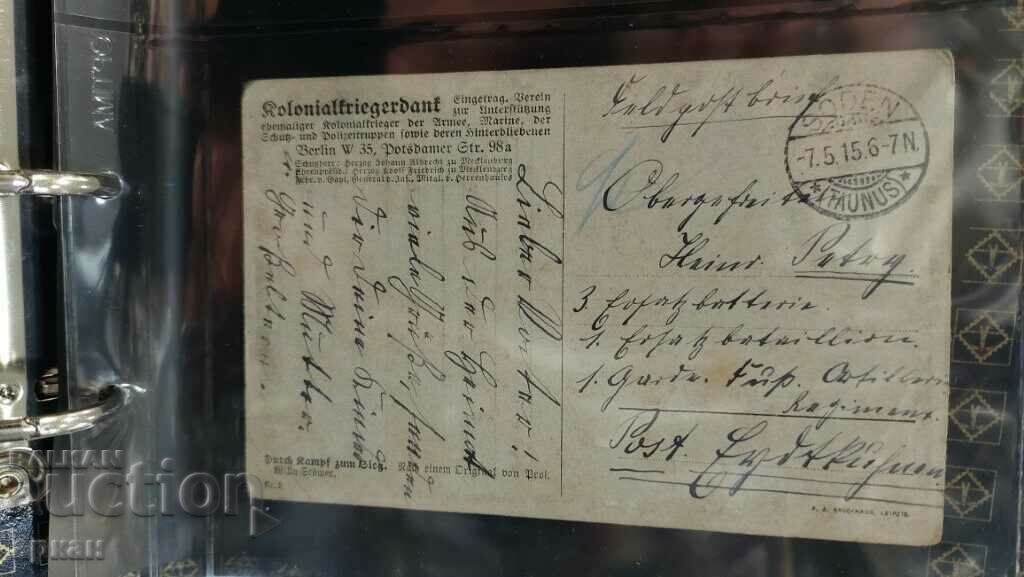 Kolonialkriegerdank Eingetrag. Verein
zur Unterstützung
ehemaliger Kolonialkrieger der Armee, Marine, der
Schutz- und Polizeitruppen sowie deren Hinterbliebenen
Berlin W 35, Potsdamer Str. 98a
Schutzherr: Herzog Johann Albrecht zu Mecklenburg
Ehrenpräsid.: Herzog Adolf Friedrich zu Mecklenburg
Lieber Vater!
Aus der Heimat
viele Grüße senden
dir deine Kinder
und Mutter.
Durch Kampf zum Sieg. Nach einem Original von Prof.
Willy Stöwer.
Feldpostbrief
SODEN
-7.5.15.6-7N.
*(TAUNUS)*
Obergefreite
Heinr. Petry.
3 Ersatzbatterie.
1. Ersatzbataillion.
1. Garde. Fuß. Artillerie
Regiment.
Post. Eydtkuhnen
F. A. BROCKHAUS, LEIPZIG.
AMTL99
auction
ркан